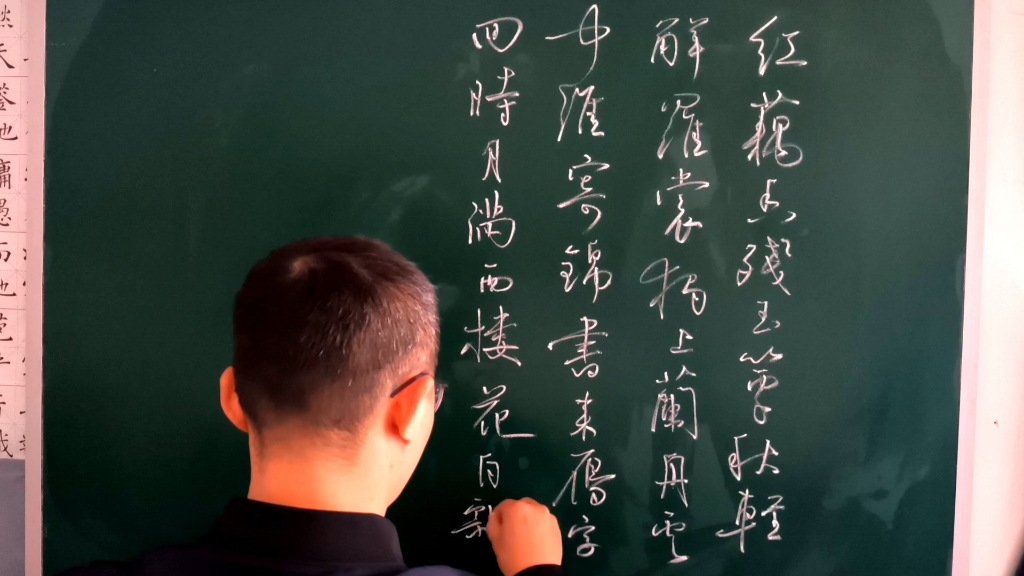 紅藕香殘玉簟秋輕
解羅裳獨上蘭舟雲
中誰寄錦書來鴈字
回時月滿西樓花自